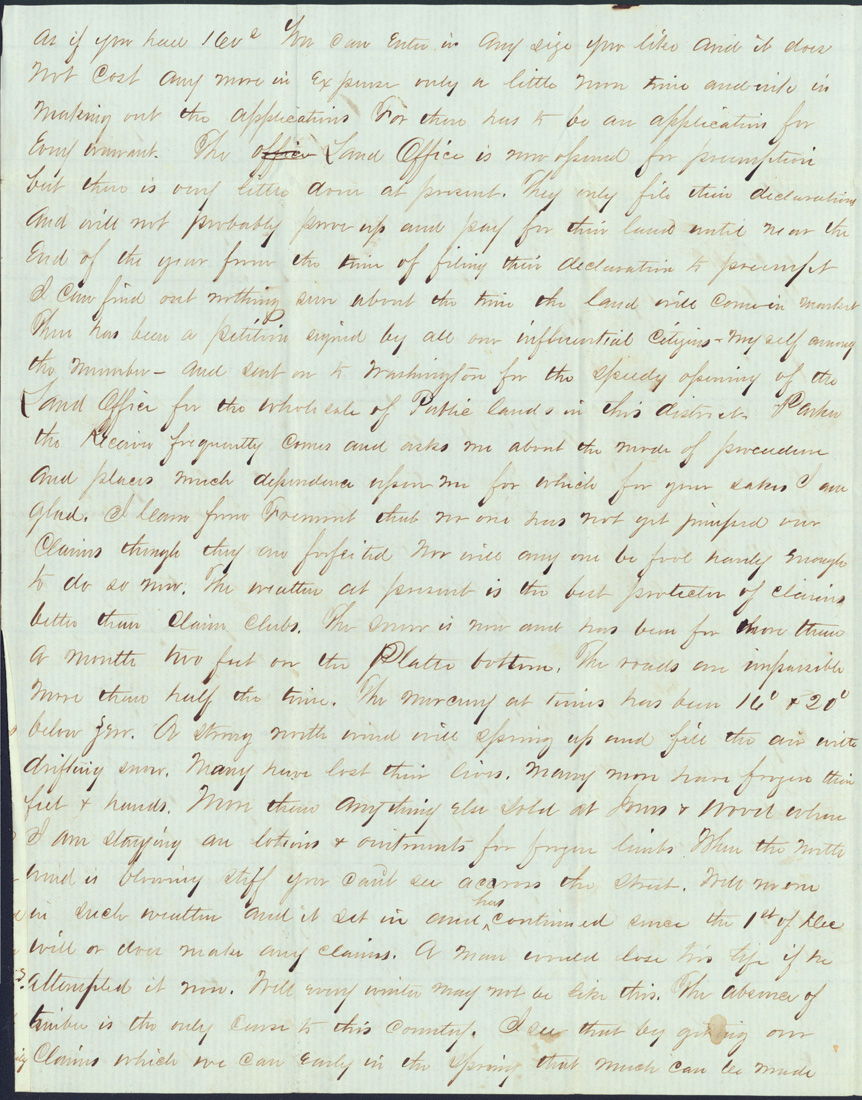 As if you had 160s You can Enter in any size you like and it does
Not Cost any more in Expense only a little more time and ink in
Making out the applications For there has to be an application for
Every warrant. The office Land Office is now opened for preemption
but there is very little done at present. They only file their declarations
And will not probably prove up and pay for their land until near the
End of the year from the time of filing their declaration to preempt
I can find out nothing sure about the time the land will come in market
There has been a petition signed by all our influential Citizens - Myself among
the Number - and sent on to Washington for the speedy opening of the
Land Office for the wholesale of Public lands in this district. Parker
the Receiver frequently Comes and asks me about the mode of procedure
And places much dependence upon me for which for your sakes I am
glad. I learn from Fremont that no one has not yet jumped our
Claims though they are forfeited Nor will any one be fool hardy Enough
to do so now. The weather at present is the best protector of claims
better than Claim Clubs. The snow is now and has been for more than
A month two feet on the Platte bottom. The roads are impassible
More than half the time. The mercury at times has been 16° & 20°
below Zero. A strong north wind will spring up and fill the air with
drifting snow. Many have lost their lives. Many more have frozen their
feet & hands. More than Anything Else sold at Jones & Wood where
I am staying are lotions & ointments for frozen limbs When the North
wind is blowing stiff you can't see accross the street. Well no one
in such weather and it set in and has continued since the 1st of Dec
will or does make any claims. A man would lose his life if he
attempted it now. Well every winter may not be like this. The absence of
timber is the only curse to this country. I see that by getting our
Claims which we can early in the spring that much can be made